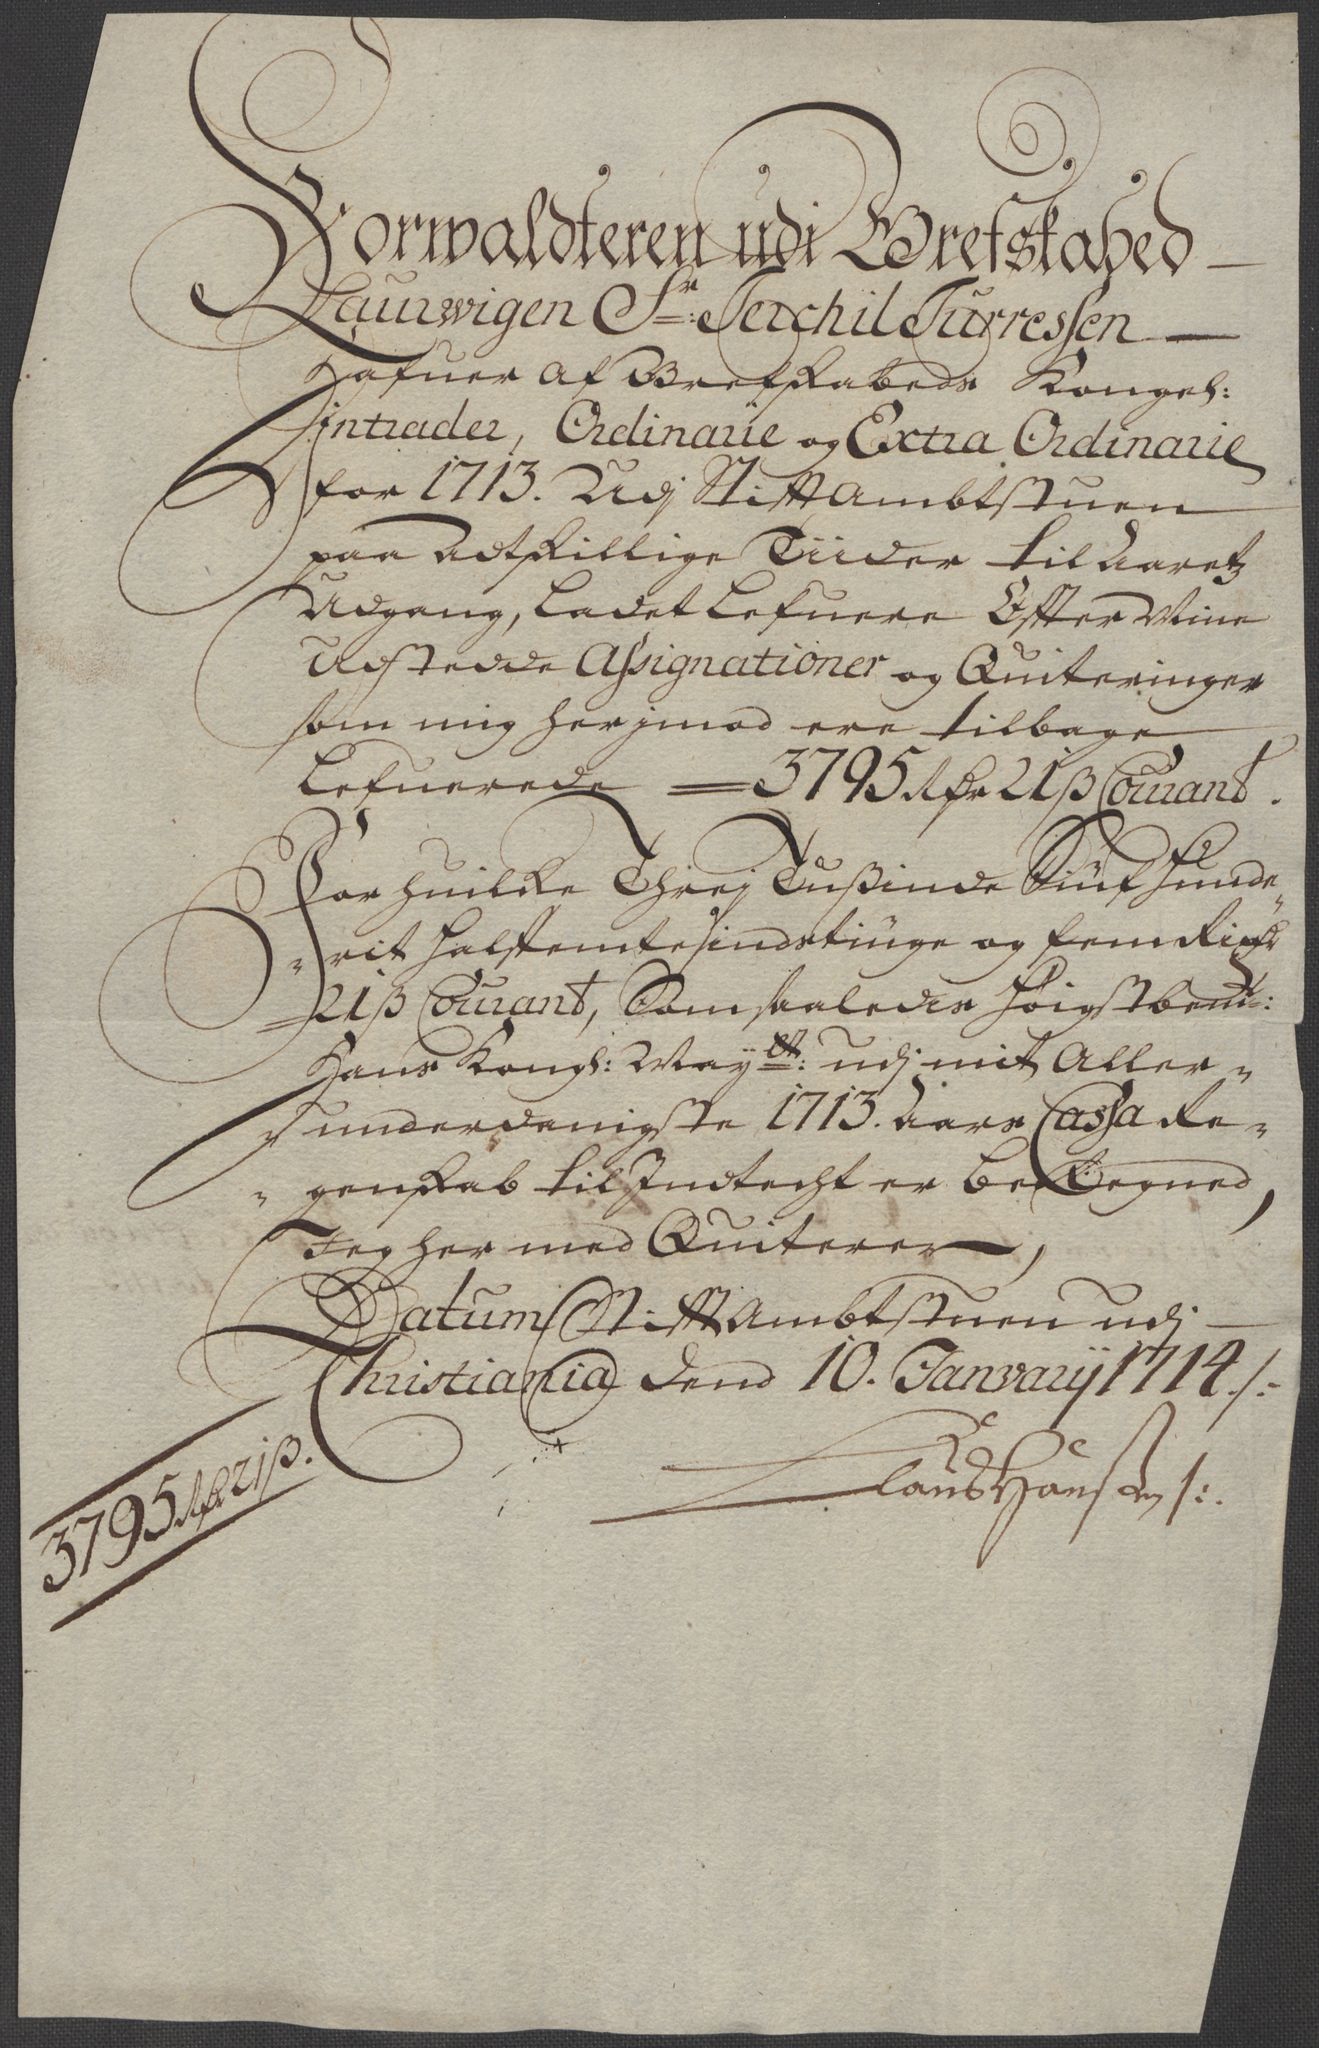 Forwaldteren udi Grefskabed
Laurwigen Sr: Terchil Turressen
Hafuer af Grefskabeds Kongel:
intrader, Ordinarie og Extra Ordinarie
for 1713. Udj Stifftambtstuen
paa adskillige Tiider til Aaretz
Udgang, ladet lefuere Effter Mine
Udstedde Assignationer og Quiteringer
som mig herjmod ere tilbage
Lefuerede = 3795 Rdr 21 ß Courant.
For huilcke Threj Tußinde Siuf Hunde-
rit halffemtesindstiuge og fem Rixdr
21 ß Courant, Som saaledes høigstbemte:
Hans Kongl: Mayst: udj mit Aller-
underdanigste 1713. Aars Cassa Re-
genskab til Indtecht er beregned,
Jeg her med Quiterer,
Datum Stifftambtstuen udj
Christiania dend 10. Janvarij 1714 ./:
Claus Hansen /:.
3795 Rdr 21 ß.